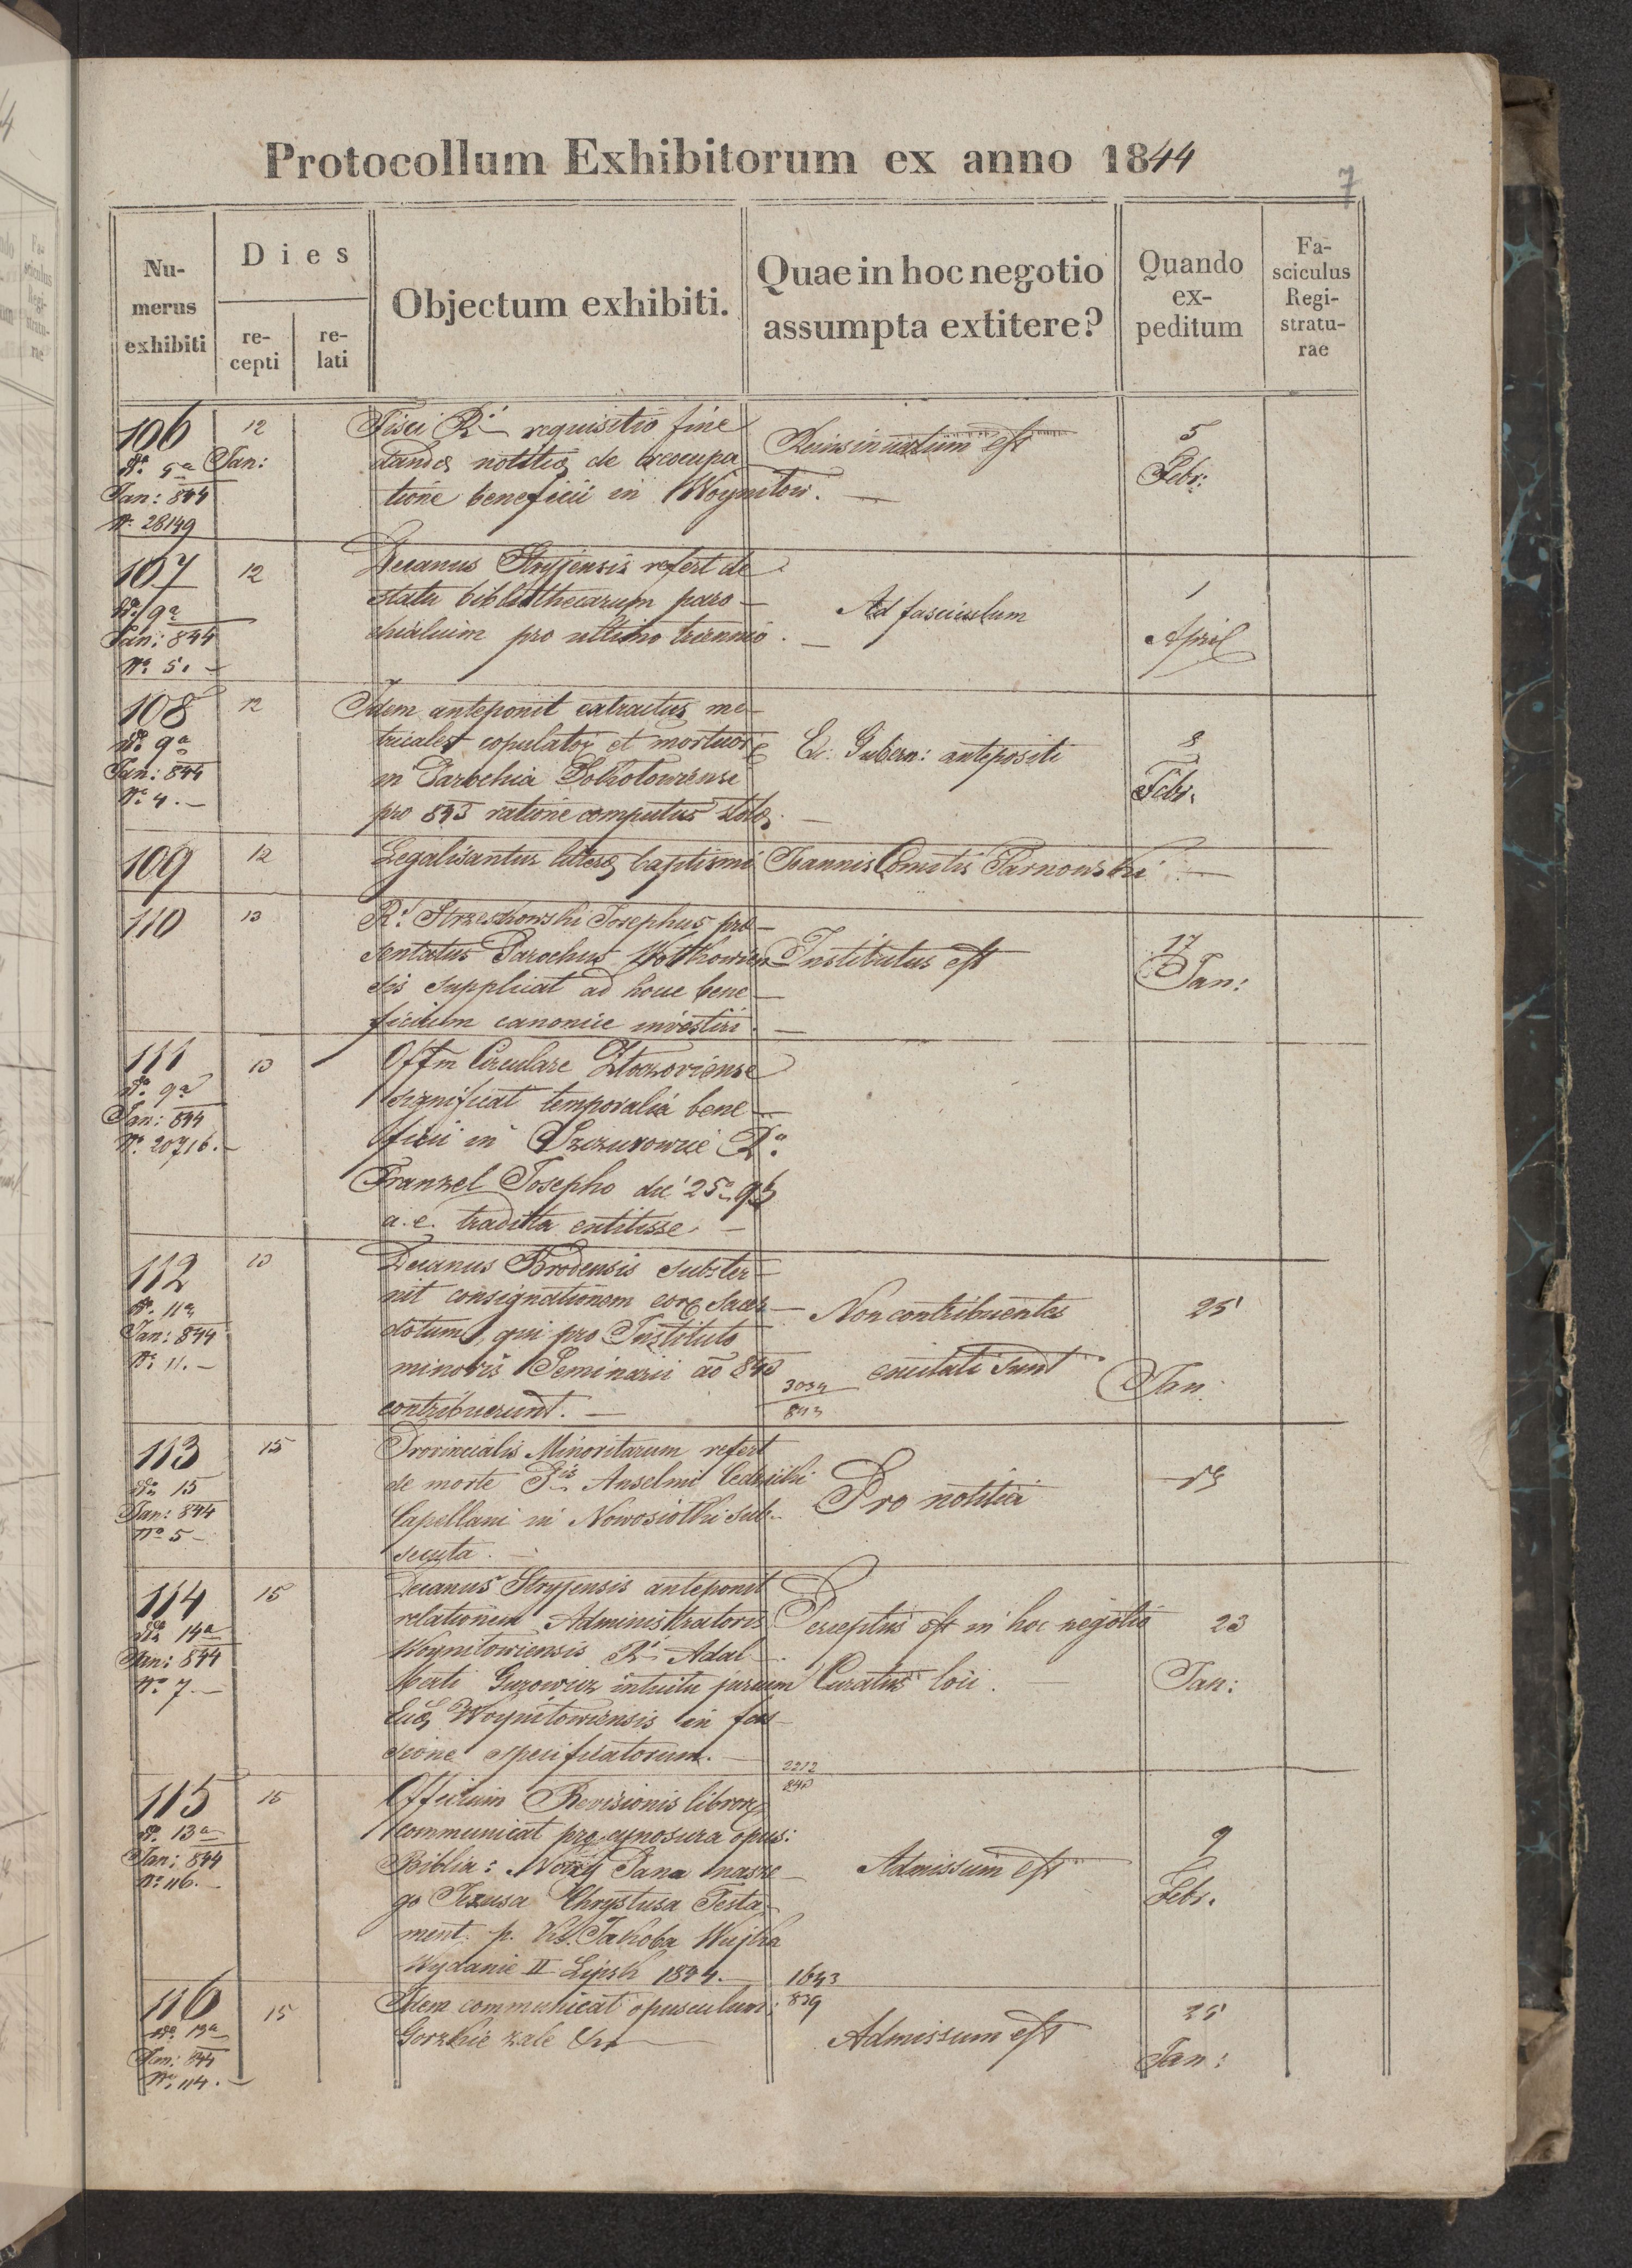 Protocollum Exhibitorum ex anno 1844
7
Numerus exhibiti
Dies
recepti
relati
Objectum exhibiti.
Quae in hoc negotio assumpta extitere?
Quando expeditum
Fasciculus Registraturae
106
12
Jan:
Fisci Rii requisitio fine
dandae notitiae de
tione beneficii in Woynilow. —
est
5
Febr:
do 5a
Jan: 844
No 28149
107
12
Decanus Stryjensis refert de
statu bibliothecarum paro-
chialium pro ultimo triennio. —
Ad fasciculum
1
April
do 9a
Jan: 844
No 5. —
108
12
Idem anteponit extractus me-
tricales copulator et mortuor
in Parochia Sokolowiensi
pro 843 ratione computus stolae. —
Ec. Gubern: antepositi
8
Febr.
do 9a
Jan: 844
No 4. —
109
12
Legalisantur literae baptismi Joannis Comitis Tarnowski —
110
13
Rd Strzeszkowski Josephus prae-
sentatus Parochus
sis supplicat ad hocce bene-
ficium canonice investiri. —
Institutus est
17
Jan:
111
13
Offm Circulare Zloczoviense
significat temporalia bene-
ficii in Szczurowice Do
Franzel Josepho die 25a 9b
a. e. tradita extitisse. —
do 9a
Jan: 844
No 20716. —
112
13
Decanus Brodensis subster-
nit consignationem eor Sacer-
dotum, qui pro Instituto
minoris Seminarii ao 843
contribuerunt. —
Non contribuentes
excitati sunt
3034
843
25
Jan:
do 11a
Jan: 844
No 11. —
113
15
Provincialis Minoritarum refert
de morte Pis Anselmi
Capellani in Nowosiolki sub-
secuta. —
Pro notitia
do 15
Jan: 844
No 5 —
114
15
Decanus Stryjensis anteponit
relationem Administratoris
Woynilowiensis Rdi Adal-
berti Gurowicz intuitu jurium
Eccae Woynilowiensis in fas-
sione specificatorum. —
Perceptus est in hoc negotio
Curatus loci. —
2212
843
23
Jan:
do 14a
Jan: 844
No 7 —
115
15
Officium Revisionis libror
communicat pro cynosura opus:
Biblia: Nowy Pana nasze-
go Jezusa Chrystusa Testa-
ment. p. Ks. Jakoba Wujka
Wydanie II Lipsk 1844. —
Admissum est
9
Febr.
do 13a
Jan: 844
No 116. —
116
15
Idem communicat opusculum:
Gorzkie zale
1643
839
Admissum est
25
Jan:
do 13a
Jan: 844
No 114. —